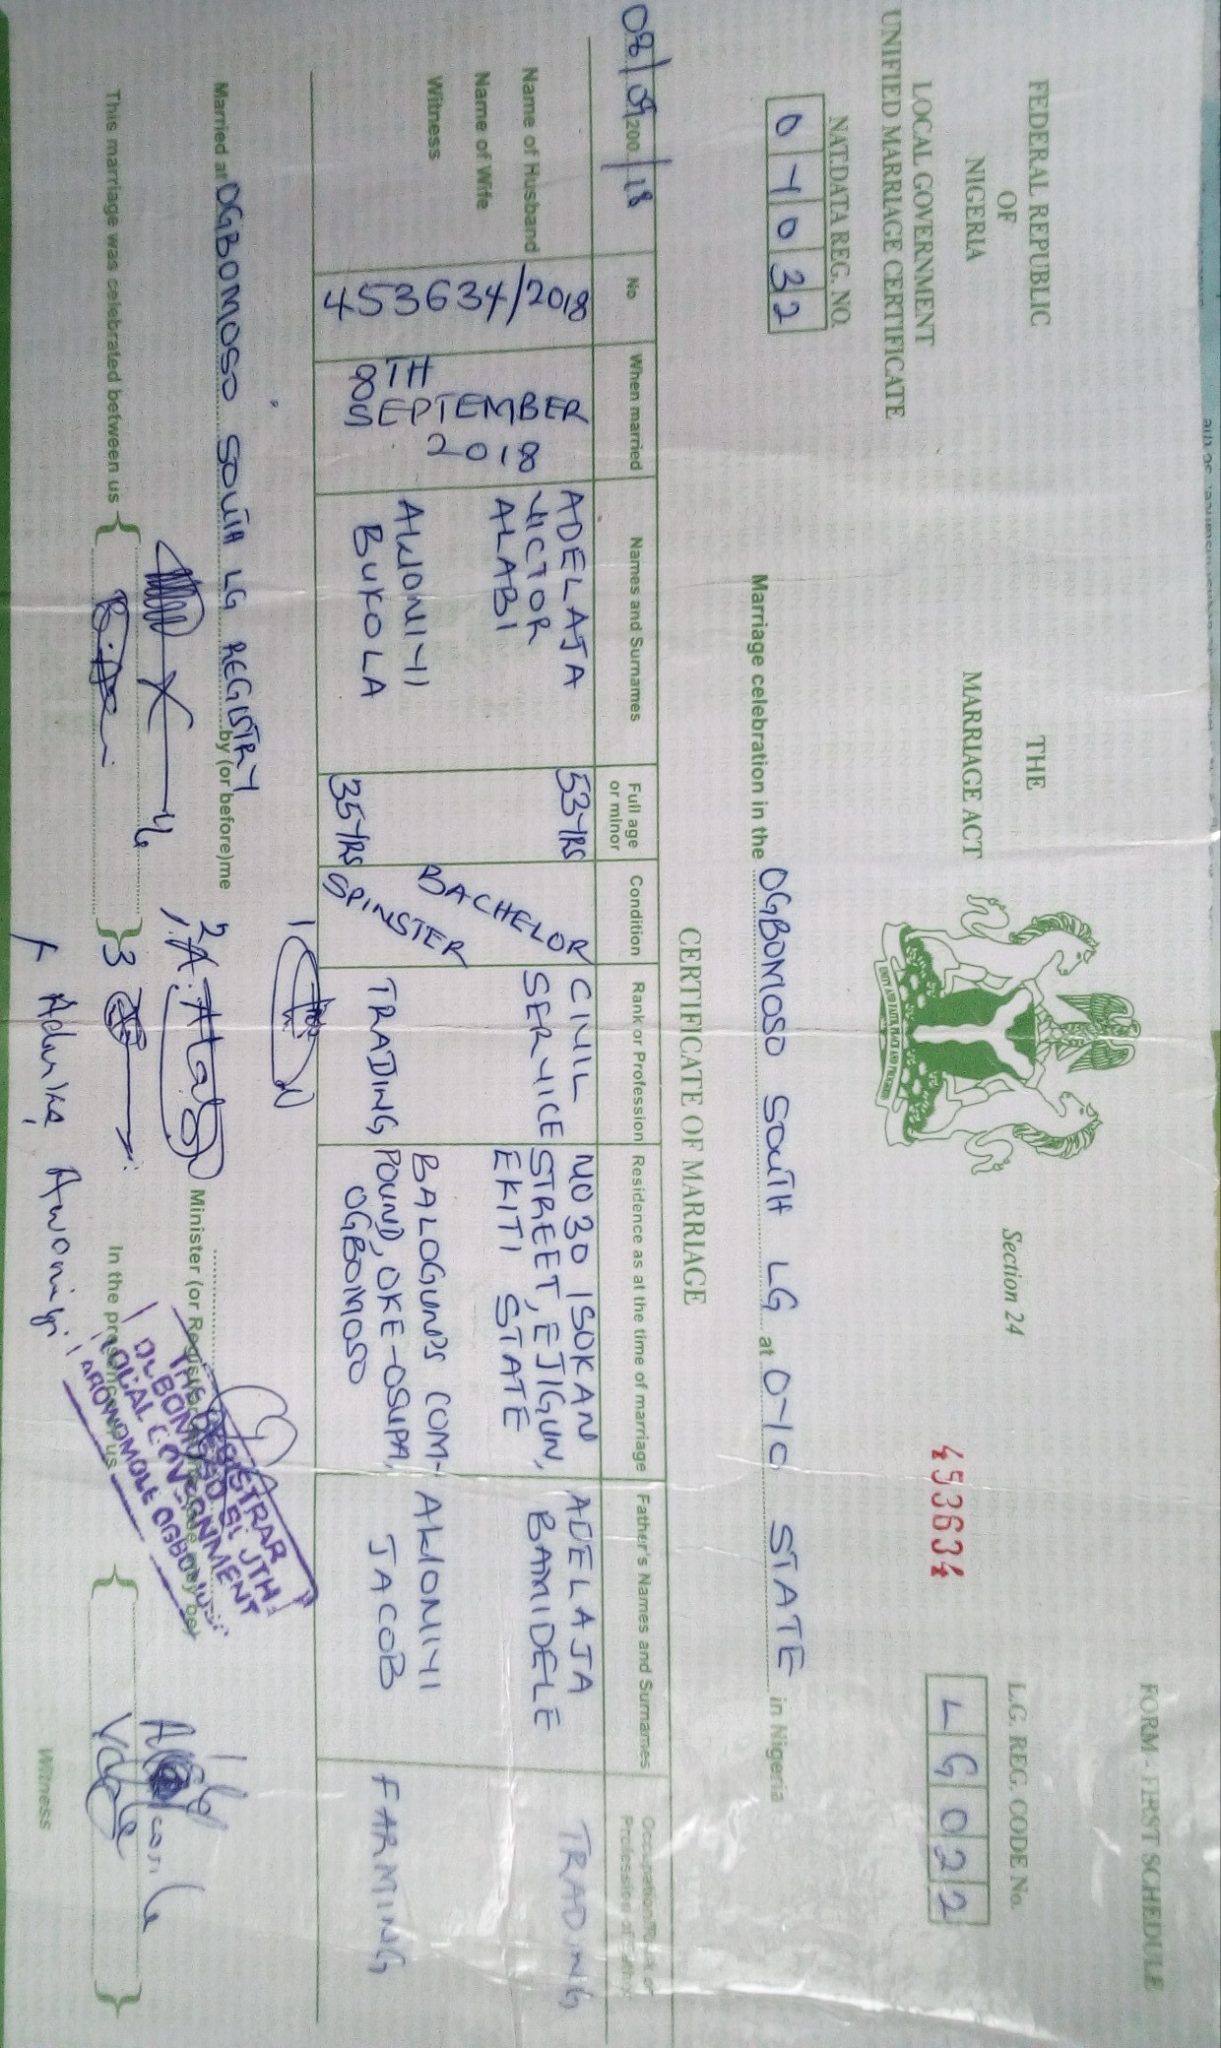 FORM - FIRST SCHEDULE
FEDERAL REPUBLIC
OF
NIGERIA
THE
MARRIAGE ACT
Section 24
L.G. REG. CODE No.
LG022
453634
LOCAL GOVERNMENT
UNIFIED MARRIAGE CERTIFICATE
NAT.DATA REG. NO.
0Y032
Marriage celebration in the OGBOMOSO SOUTH LG at OYO STATE in Nigeria
CERTIFICATE OF MARRIAGE
08/09/200 /18
No
When married
Names and Surnames
Full age or minor
Condition
Rank or Profession
Residence as at the time of marriage
Father's Names and Surnames
Name of Husband
Name of Wife
Witness
453634/2018
8TH
SEPTEMBER
2018
ADELAJA
VICTOR
ALABI
53YRS
BACHELOR
CIVIL
SERVICE
NO 30 ISOKAN
STREET, EJIGUN,
EKITI STATE
ADELAJA
BAMIDELE
TRADING
AWONIYI
BUKOLA
35YRS
SPINSTER
TRADING
BALOGUN'S COM-
POUND, OKE-OSUPA,
OGBOMOSO
AWONIYI
JACOB
FARMING
Married at OGBOMOSO SOUTH LG REGISTRY by (or before) me
Minister (or Registrar
This marriage was celebrated between us
In the presence of us
Witness
Adunke Awoniyi
THE REGISTRAR
OGBOMOSO SOUTH
LOCAL GOVERNMENT
AROWOMOLE OGBOMOSO